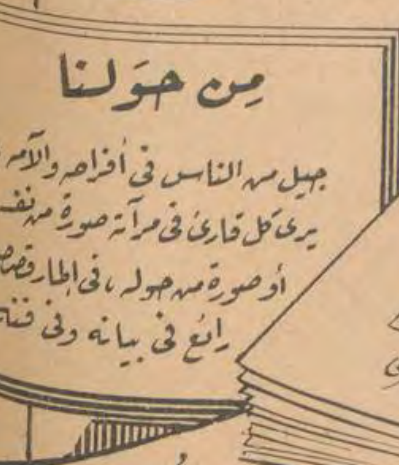 من حولنا
جيل من الناس في أفراحه وآلامه
يرى كل قارئ في مرآته صورة من نفسه
أو صورة من حوله، في إطار قصصي
رائع في بيانه وفي فنه